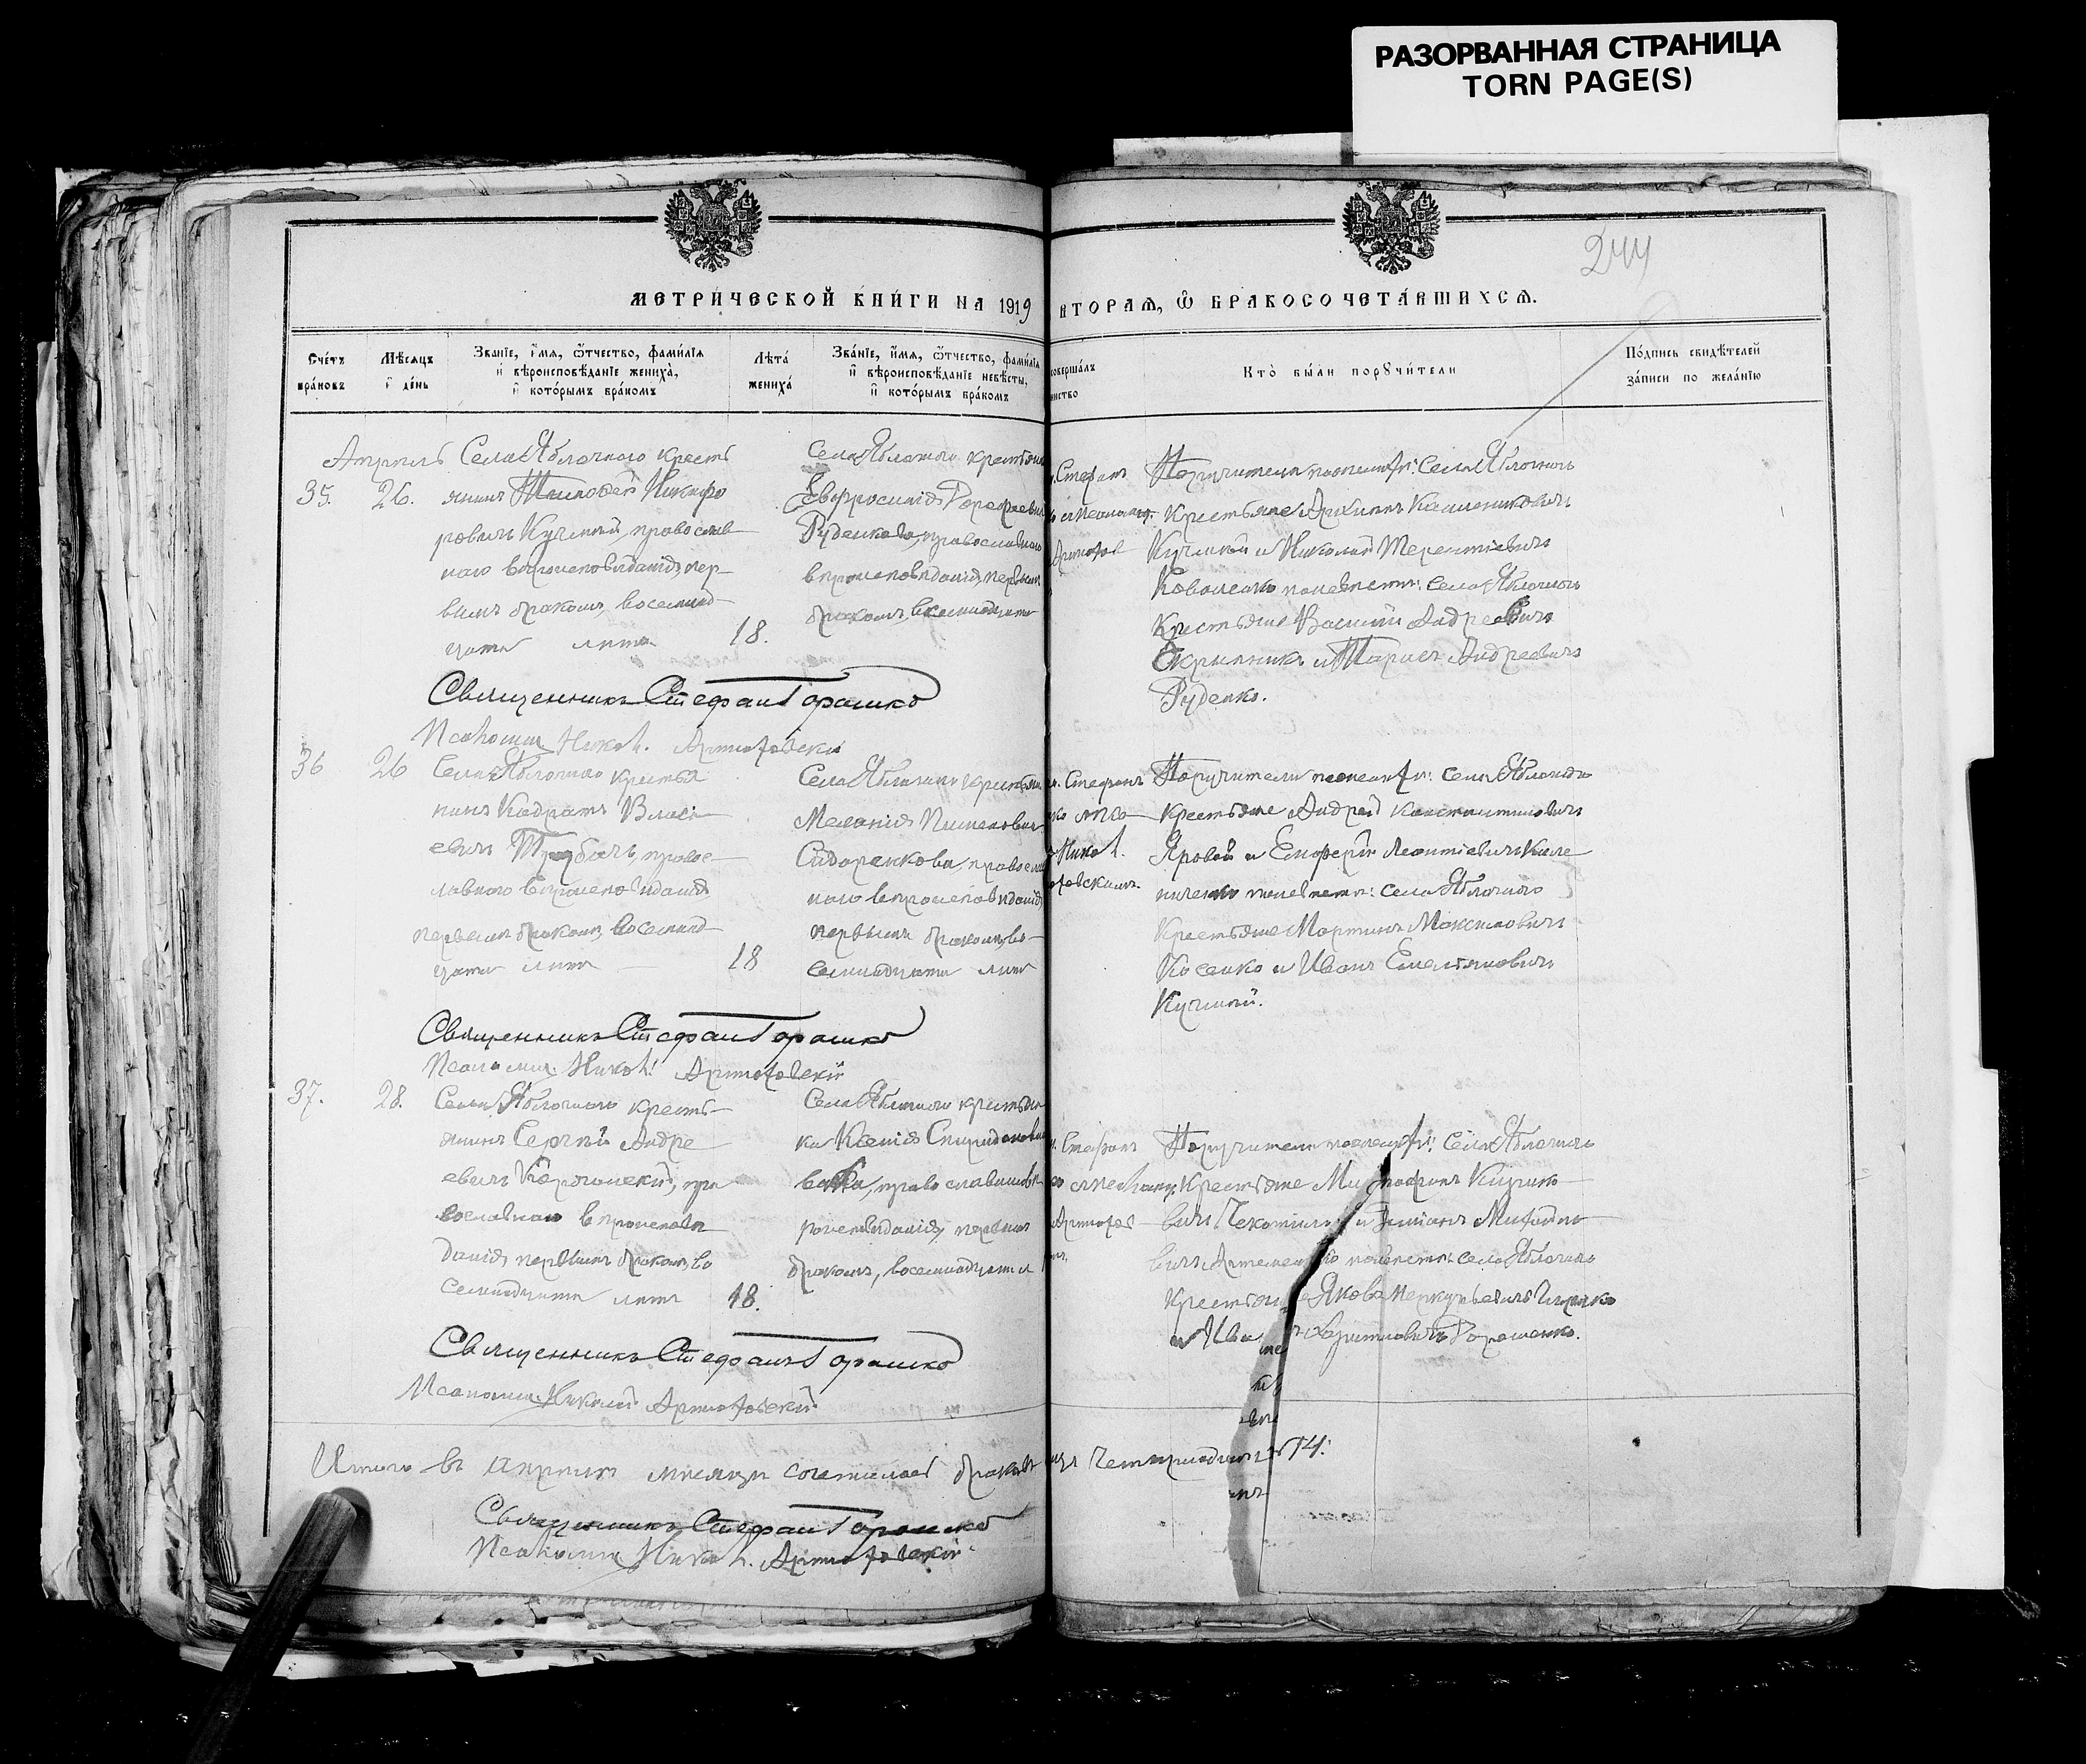 РАЗОРВАННАЯ СТРАНИЦА
TORN PAGE(S)
244
МЕТРИ́ЧЕСКОЙ КНИ́ГИ НА 1919
ВТОРАѦ, Ѿ БРАКОСОЧЕТА́ВШИХСѦ.
Сче́тъ бра́ковъ
Мѣ́сяцъ и де́нь
Зва́нїе, и́мя, ѻ҆́тчество, фами́лїя и вѣроисповѣ́данїе жениха̀, и кото́рымъ бра́комъ
Лѣта́ жениха́
Зва́нїе, и́мя, ѻ҆́тчество, фами́лїя и вѣроисповѣ́данїе невѣ́сты, и кото́рымъ бра́комъ
соверша́лъ
инство
Кто̀ бы́ли порꙋчи́тели
По́дпись свидѣ́телей
за́писи по жела́нїю
Апрель
35. 26.
Села Яблочнаго кресть
янинъ Никифо
ровичъ Кучмій, православ
наго вѣроисповѣданія, пер-
вымъ бракомъ, восемнад-
цати лѣтъ
18.
Села Яблочнаго крестьян
Евфросинія
Руденкова, православнаго
вѣроисповѣданія, первымъ
бракомъ, восемнадцати
Стефанъ
Поручители по женихѣ: Села Яблочнаго
Крестьяне
Кучмій и Николай Терентіевичъ
Коваленко по невѣстѣ: села Яблочнаго
Крестьяне Василій Андреевичъ
Скрыпникъ и Тарасъ Андреевичъ
Руденко.
Священникъ Стефан Горашко
Псаломщ. Никол. Артюховскій
36 26
Села Яблочнаго крестья
нинъ Кодратъ Власі
евичъ правос-
лавнаго вѣроисповѣданія
первымъ бракомъ, восемнад-
цати лѣтъ
18
Села Яблочнаго крестьян
Меланія Пименовна
Сидоренкова, правосла
наго вѣроисповѣданія
первымъ бракомъ, во-
семнадцати лѣтъ
Стефанъ
Никол.
Поручители по женихѣ: села Яблочнаго
крестьяне Андрей Константиновичъ
Яровой и Елиферій Леонтіевичъ Кале
ниченко по невѣстѣ: села Яблочнаго
Крестьяне Мартинъ Максимовичъ
Косенко и Иванъ Емельяновичъ
Кучмій.
Священникъ Стефан Горашко
Псаломщ. Никол. Артюховскій
37. 28.
Села Яблочнаго кресть-
янинъ Сергѣй Андре
евичъ пра
вославнаго вѣроисповѣ
данія, первымъ бракомъ, во
семнадцати лѣтъ
18.
Села Яблочнаго крестьян
ка Ксенія Спиридонова
православнаго вѣ
роисповѣданія, первымъ
бракомъ, восемнадцати л
Стефанъ
Поручители по женихѣ: Села Яблочнаго
Крестьяне Митрофанъ
и Демьянъ
вичъ по невѣстѣ: села Яблочнаго
Крестьяне Яковъ Меркурьевичъ
и Иванъ Харитоновичъ
Священникъ Стефанъ Горашко
Псаломщ. Николай Артюховскій
Итого въ апрѣлѣ мѣсяцѣ сочеталось браковъ
14.
Священникъ Стефан Горашко
Псаломщ. Никол. Артюховскій